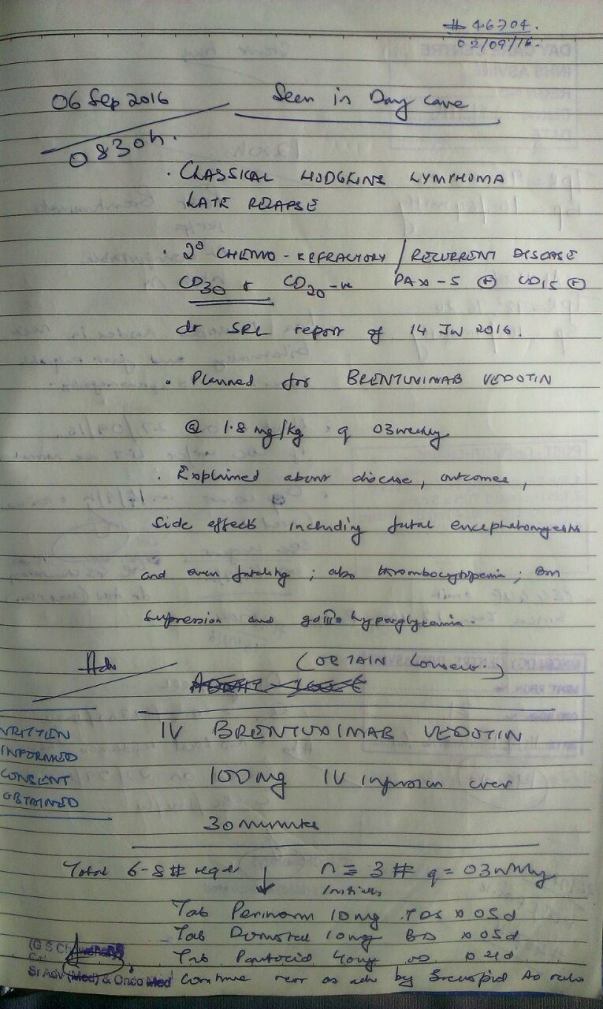 # 46704.
02/09/16.
06 Sep 2016
Seen in Day care
0830h.
. CLASSICAL HODGKINS LYMPHOMA
LATE RELAPSE
. 2° CHEMO - REFRACTORY / RECURRENT DISEASE
CD30 + CD20-ve PAX-5 ⊕ CD15 ⊕
dt SRL report of 14 JUL 2016.
. Planned for BRENTUXIMAB VEDOTIN
@ 1.8 mg/kg q 03 weekly
. Explained about disease, outcomes,
side effects including fatal
and even fatality ; also thrombocytopenia ; BM
supression and hyperglycemia.
Adv
(OBTAIN Consent.)
WRITTEN
INFORMED
CONSENT
OBTAINED
IV BRENTUXIMAB VEDOTIN
100mg IV infusion over
30 minutes
Total 6-8 # reqd n = 3 # q = 03 wkly
initially
Tab Perinorm 10mg TDS x 05d
Tab Domstal 10mg BD x 05d
Tab Pantocid 40mg OD x 21d
Sr Adv (Med) & Onco Med
Continue rest as adv by